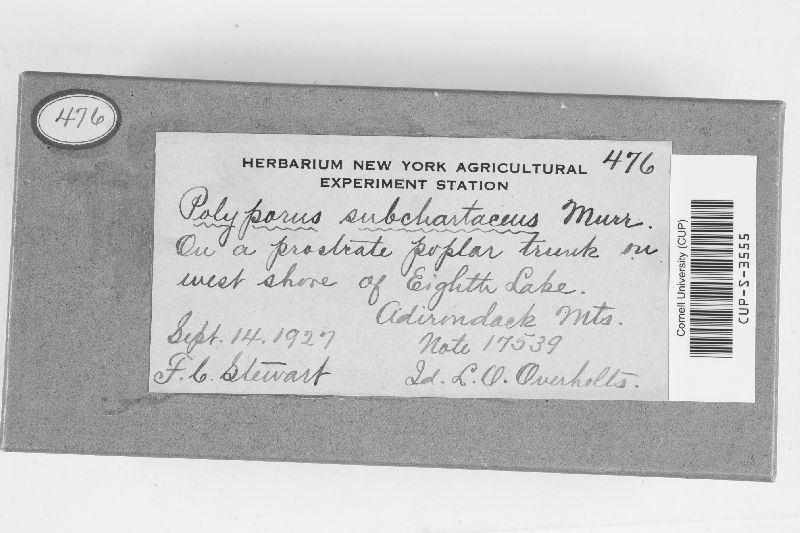 476
HERBARIUM NEW YORK AGRICULTURAL 476
EXPERIMENT STATION
Polyporus subchartaceus Murr.
On a prostrate poplar trunk on
west shore of Eighth Lake.
Adirondack Mts.
Sept. 14. 1927
Note 17539
F. C. Stewart
Id. L. O. Overholts.
Cornell University (CUP)
CUP-S-3555